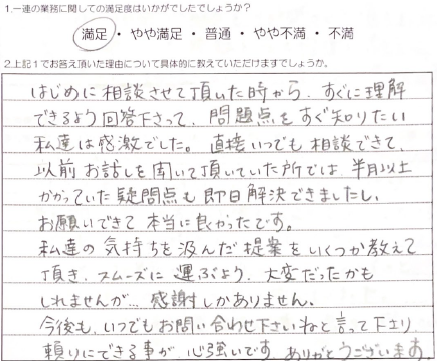 1.一連の業務に関しての満足度はいかがでしたでしょうか？
満足・やや満足・普通・やや不満・不満
2.上記1でお答え頂いた理由について具体的に教えていただけますでしょうか。
はじめに相談させて頂いた時から、すぐに理解
できるよう回答下さって、問題点をすぐ知りたい
私達は感激でした。直接いつでも相談できて、
以前お話しを聞いて頂いていた所では、半月以上
かかっていた疑問点も即日解決できましたし、
お願いできて本当に良かったです。
私達の気持ちを汲んだ提案をいくつか教えて
頂き、スムーズに運ぶよう、大変だったかも
しれませんが…感謝しかありません。
今後も、いつでもお問い合わせ下さいねと言って下さり、
頼りにできる事が心強いです。ありがとうございます